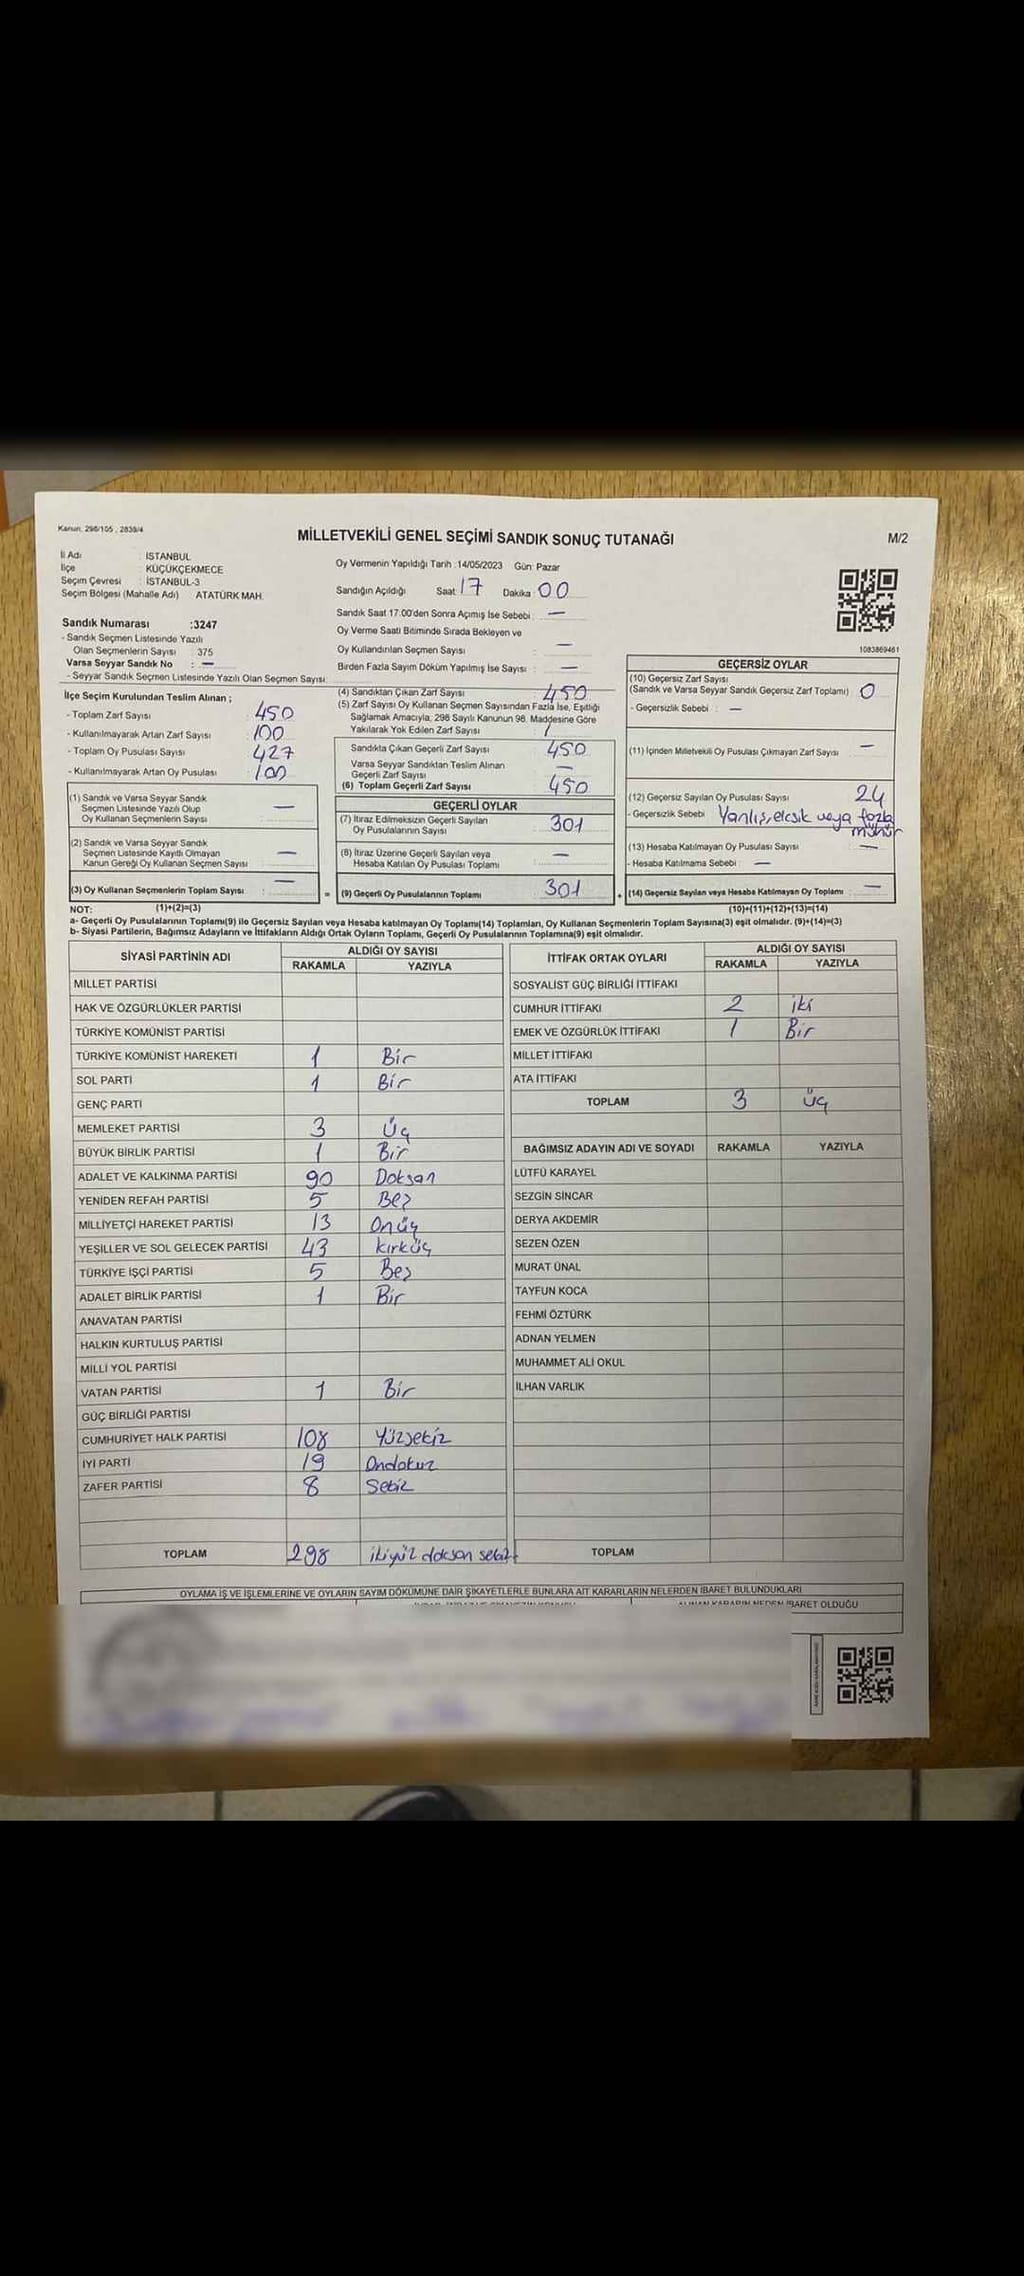 Kanun: 298/105 , 2839/4
MİLLETVEKİLİ GENEL SEÇİMİ SANDIK SONUÇ TUTANAĞI
M/2
İl Adı : İSTANBUL
İlçe : KÜÇÜKÇEKMECE
Seçim Çevresi : İSTANBUL-3
Seçim Bölgesi (Mahalle Adı) ATATÜRK MAH.
Oy Vermenin Yapıldığı Tarih :14/05/2023 Gün: Pazar
Sandığın Açıldığı Saat: 17 Dakika: 00
Sandık Saat 17.00'den Sonra Açılmış İse Sebebi : —
Oy Verme Saati Bitiminde Sırada Bekleyen ve
Oy Kullandırılan Seçmen Sayısı : —
Birden Fazla Sayım Döküm Yapılmış İse Sayısı : —
Sandık Numarası :3247
- Sandık Seçmen Listesinde Yazılı
Olan Seçmenlerin Sayısı : 375
Varsa Seyyar Sandık No : —
- Seyyar Sandık Seçmen Listesinde Yazılı Olan Seçmen Sayısı:
1083869461
İlçe Seçim Kurulundan Teslim Alınan ;
- Toplam Zarf Sayısı : 450
- Kullanılmayarak Artan Zarf Sayısı : 100
- Toplam Oy Pusulası Sayısı : 427
- Kullanılmayarak Artan Oy Pusulası : 100
(1) Sandık ve Varsa Seyyar Sandık
Seçmen Listesinde Yazılı Olup
Oy Kullanan Seçmenlerin Sayısı : —
(2) Sandık ve Varsa Seyyar Sandık
Seçmen Listesinde Kayıtlı Olmayan
Kanun Gereği Oy Kullanan Seçmen Sayısı : —
(3) Oy Kullanan Seçmenlerin Toplam Sayısı : —
(4) Sandıktan Çıkan Zarf Sayısı : 450
(5) Zarf Sayısı Oy Kullanan Seçmen Sayısından Fazla İse, Eşitliği
Sağlamak Amacıyla; 298 Sayılı Kanunun 98. Maddesine Göre
Yakılarak Yok Edilen Zarf Sayısı :
Sandıkta Çıkan Geçerli Zarf Sayısı : 450
Varsa Seyyar Sandıktan Teslim Alınan
Geçerli Zarf Sayısı : —
(6) Toplam Geçerli Zarf Sayısı : 450
GEÇERLİ OYLAR
(7) İtiraz Edilmeksizin Geçerli Sayılan
Oy Pusulalarının Sayısı : 301
(8) İtiraz Üzerine Geçerli Sayılan veya
Hesaba Katılan Oy Pusulası Toplamı : —
= (9) Geçerli Oy Pusulalarının Toplamı : 301
GEÇERSİZ OYLAR
(10) Geçersiz Zarf Sayısı
(Sandık ve Varsa Seyyar Sandık Geçersiz Zarf Toplamı) : 0
- Geçersizlik Sebebi : —
(11) İçinden Milletvekili Oy Pusulası Çıkmayan Zarf Sayısı : —
(12) Geçersiz Sayılan Oy Pusulası Sayısı : 24
- Geçersizlik Sebebi : Yanlış, eksik veya fazla
mühür
(13) Hesaba Katılmayan Oy Pusulası Sayısı : —
- Hesaba Katılmama Sebebi : —
+ (14) Geçersiz Sayılan veya Hesaba Katılmayan Oy Toplamı : —
NOT: (1)+(2)=(3) (10)+(11)+(12)+(13)=(14)
a- Geçerli Oy Pusulalarının Toplamı(9) ile Geçersiz Sayılan veya Hesaba katılmayan Oy Toplamı(14) Toplamları, Oy Kullanan Seçmenlerin Toplam Sayısına(3) eşit olmalıdır. (9)+(14)=(3)
b- Siyasi Partilerin, Bağımsız Adayların ve İttifakların Aldığı Ortak Oyların Toplamı, Geçerli Oy Pusulalarının Toplamına(9) eşit olmalıdır.
SİYASİ PARTİNİN ADI ALDIĞI OY SAYISI
RAKAMLA YAZIYLA
MİLLET PARTİSİ
HAK VE ÖZGÜRLÜKLER PARTİSİ
TÜRKİYE KOMÜNİST PARTİSİ
TÜRKİYE KOMÜNİST HAREKETİ 1 Bir
SOL PARTİ 1 Bir
GENÇ PARTİ
MEMLEKET PARTİSİ 3 Üç
BÜYÜK BİRLİK PARTİSİ 1 Bir
ADALET VE KALKINMA PARTİSİ 90 Doksan
YENİDEN REFAH PARTİSİ 5 Beş
MİLLİYETÇİ HAREKET PARTİSİ 13 Onüç
YEŞİLLER VE SOL GELECEK PARTİSİ 43 kırküç
TÜRKİYE İŞÇİ PARTİSİ 5 Beş
ADALET BİRLİK PARTİSİ 1 Bir
ANAVATAN PARTİSİ
HALKIN KURTULUŞ PARTİSİ
MİLLİ YOL PARTİSİ
VATAN PARTİSİ 1 Bir
GÜÇ BİRLİĞİ PARTİSİ
CUMHURİYET HALK PARTİSİ 108 Yüzsekiz
İYİ PARTİ 19 Ondokuz
ZAFER PARTİSİ 8 Sekiz
TOPLAM 298 ikiyüz doksan sekiz
İTTİFAK ORTAK OYLARI ALDIĞI OY SAYISI
RAKAMLA YAZIYLA
SOSYALİST GÜÇ BİRLİĞİ İTTİFAKI
CUMHUR İTTİFAKI 2 iki
EMEK VE ÖZGÜRLÜK İTTİFAKI 1 Bir
MİLLET İTTİFAKI
ATA İTTİFAKI
TOPLAM 3 Üç
BAĞIMSIZ ADAYIN ADI VE SOYADI RAKAMLA YAZIYLA
LÜTFÜ KARAYEL
SEZGİN SİNCAR
DERYA AKDEMİR
SEZEN ÖZEN
MURAT ÜNAL
TAYFUN KOCA
FEHMİ ÖZTÜRK
ADNAN YELMEN
MUHAMMET ALİ OKUL
İLHAN VARLIK
TOPLAM
OYLAMA İŞ VE İŞLEMLERİNE VE OYLARIN SAYIM DÖKÜMÜNE DAİR ŞİKAYETLERLE BUNLARA AİT KARARLARIN NELERDEN İBARET BULUNDUKLARI
ALINAN KARARIN NEDEN İBARET OLDUĞU